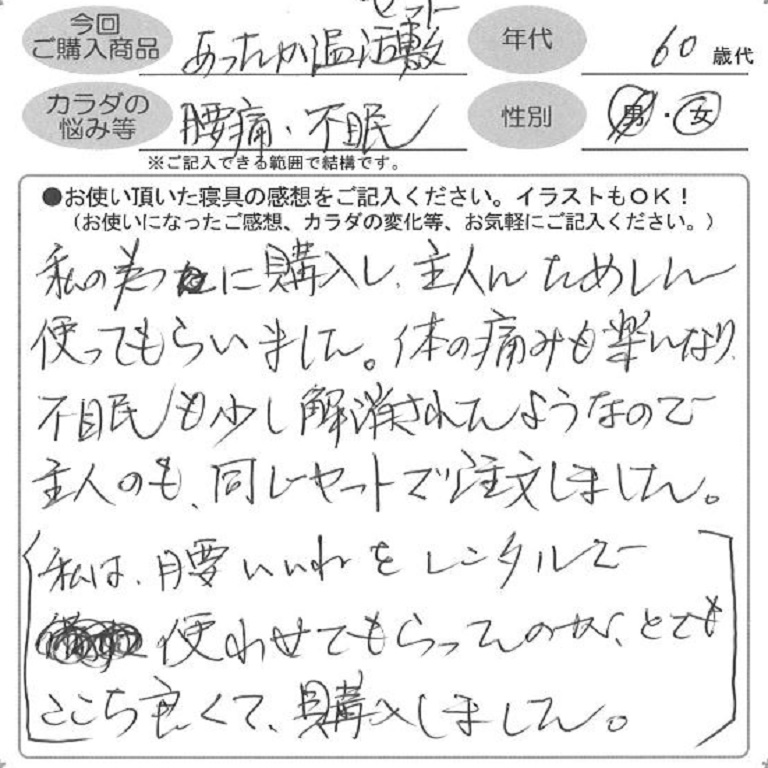 今回
ご購入商品
セット
あったか温活敷
年代
60 歳代
カラダの
悩み等
腰痛、不眠
性別
男・女
※ご記入できる範囲で結構です。
●お使い頂いた寝具の感想をご記入ください。イラストもOK！
（お使いになったご感想、カラダの変化等、お気軽にご記入ください。）
私の為に購入し、主人にためしに
使ってもらいました。体の痛みも楽になり、
不眠も少し解消されたようなので
主人のも、同じセットで注文しました。
私は、腰いいねをレンタルで
使わせてもらってたのが、とても
ここち良くて、購入しました。